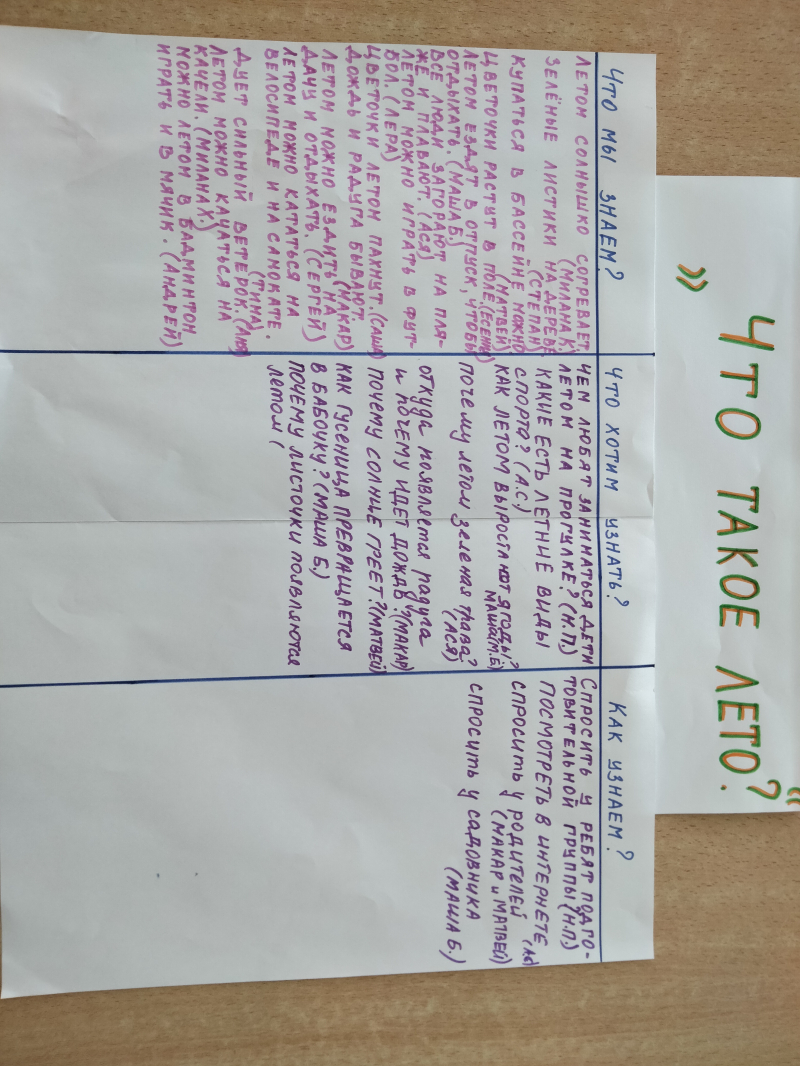 « ЧТО ТАКОЕ ЛЕТО? »
ЧТО МЫ ЗНАЕМ?
ЛЕТОМ СОЛНЫШКО СОГРЕВАЕТ.
(МИЛАНА К.)
ЗЕЛЁНЫЕ ЛИСТИКИ НА ДЕРЕВЕ
(СТЕПАН)
КУПАТЬСЯ В БАССЕЙНЕ МОЖНО
(МАТВЕЙ)
ЦВЕТОЧКИ РАСТУТ В ПОЛЕ.
ЛЕТОМ ЕЗДЯТ В ОТПУСК, ЧТОБЫ
ОТДЫХАТЬ. (МАША Б.)
ВСЕ ЛЮДИ ЗАГОРАЮТ НА ПЛЯ-
ЖЕ И ПЛАВАЮТ. (АСЯ)
ЛЕТОМ МОЖНО ИГРАТЬ В ФУТ-
БОЛ. (ЛЕРА)
ЦВЕТОЧКИ ЛЕТОМ ПАХНУТ. (САША)
ДОЖДЬ И РАДУГА БЫВАЮТ
(МАКАР)
ЛЕТОМ МОЖНО ЕЗДИТЬ НА
ДАЧУ И ОТДЫХАТЬ. (СЕРГЕЙ)
ЛЕТОМ МОЖНО КАТАТЬСЯ НА
ВЕЛОСИПЕДЕ И НА САМОКАТЕ.
(ТИНА)
ДУЕТ СИЛЬНЫЙ ВЕТЕРОК.
ЛЕТОМ МОЖНО КАЧАТЬСЯ НА
КАЧЕЛИ. (МИЛАНА Х.)
МОЖНО ЛЕТОМ В БАДМИНТОН
ИГРАТЬ И В МЯЧИК. (АНДРЕЙ)
ЧТО ХОТИМ УЗНАТЬ?
ЧЕМ ЛЮБЯТ ЗАНИМАТЬСЯ ДЕТИ
ЛЕТОМ НА ПРОГУЛКЕ? (Н.П.)
КАКИЕ ЕСТЬ ЛЕТНИЕ ВИДЫ
СПОРТА? (А.С)
КАК ЛЕТОМ ВЫРОСТАЮТ ЯГОДЫ?
МАША(М.Б)
ПОЧЕМУ ЛЕТОМ ЗЕЛЕНАЯ ТРАВА?
(АСЯ)
ОТКУДА ПОЯВЛЯЕТСЯ РАДУГА
И ПОЧЕМУ ИДЕТ ДОЖДЬ? (МАКАР)
ПОЧЕМУ СОЛНЦЕ ГРЕЕТ? (МАТВЕЙ)
КАК ГУСЕНИЦА ПРЕВРАЩАЕТСЯ
В БАБОЧКУ? (МАША Б.)
ПОЧЕМУ ЛИСТОЧКИ ПОЯВЛЯЮТСЯ
ЛЕТОМ (
КАК УЗНАЕМ?
СПРОСИТЬ У РЕБЯТ ПОДГО-
ТОВИТЕЛЬНОЙ ГРУППЫ (Н.П.)
ПОСМОТРЕТЬ В ИНТЕРНЕТЕ
СПРОСИТЬ У РОДИТЕЛЕЙ
(МАКАР И МАТВЕЙ)
СПРОСИТЬ У САДОВНИКА
(МАША Б.)